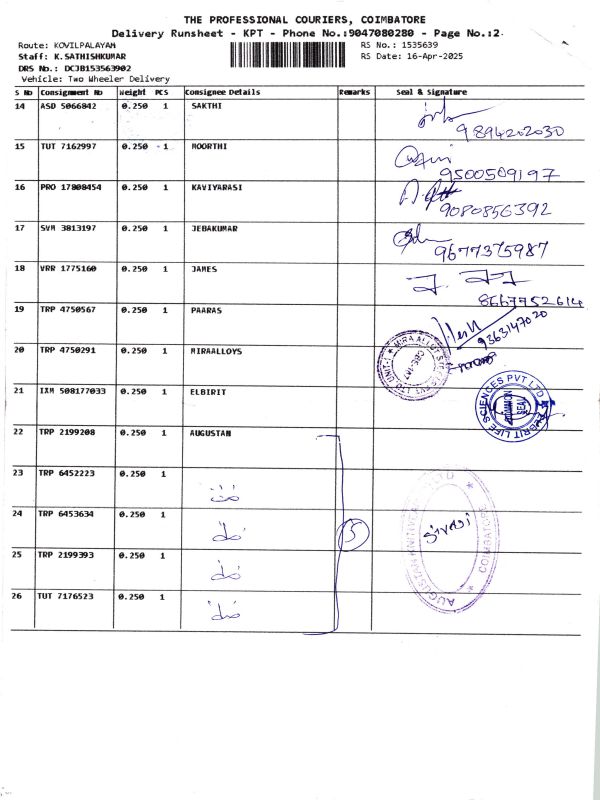 THE PROFESSIONAL COURIERS, COIMBATORE
Delivery Runsheet - KPT - Phone No.:9047080280 - Page No.:2
Route: KOVILPALAYAM RS No.: 1535639
Staff: K.SATHISHKUMAR RS Date: 16-Apr-2025
DRS No.: DCJB153563902
Vehicle: Two Wheeler Delivery
S No Consignment No Weight PCS Consignee Details Remarks Seal & Signature
14 ASD 5066842 0.250 1 SAKTHI
9894202030
15 TUT 7162997 0.250 1 MOORTHI
9500509197
16 PRO 17808454 0.250 1 KAVIYARASI
9080856392
17 SVM 3813197 0.250 1 JEBAKUMAR
9677375987
18 VRR 1775160 0.250 1 JAMES
8667752614
19 TRP 4750567 0.250 1 PAARAS
9363147020
20 TRP 4750291 0.250 1 MIRAALLOYS
21 IXM 508177033 0.250 1 ELBIRIT
LIFE SCIENCES PVT LTD
COMMON
SEAL
22 TRP 2199208 0.250 1 AUGUSTAN
23 TRP 6452223 0.250 1
24 TRP 6453634 0.250 1
5
25 TRP 2199393 0.250 1
26 TUT 7176523 0.250 1
AUGUSTAN
COIMBATORE